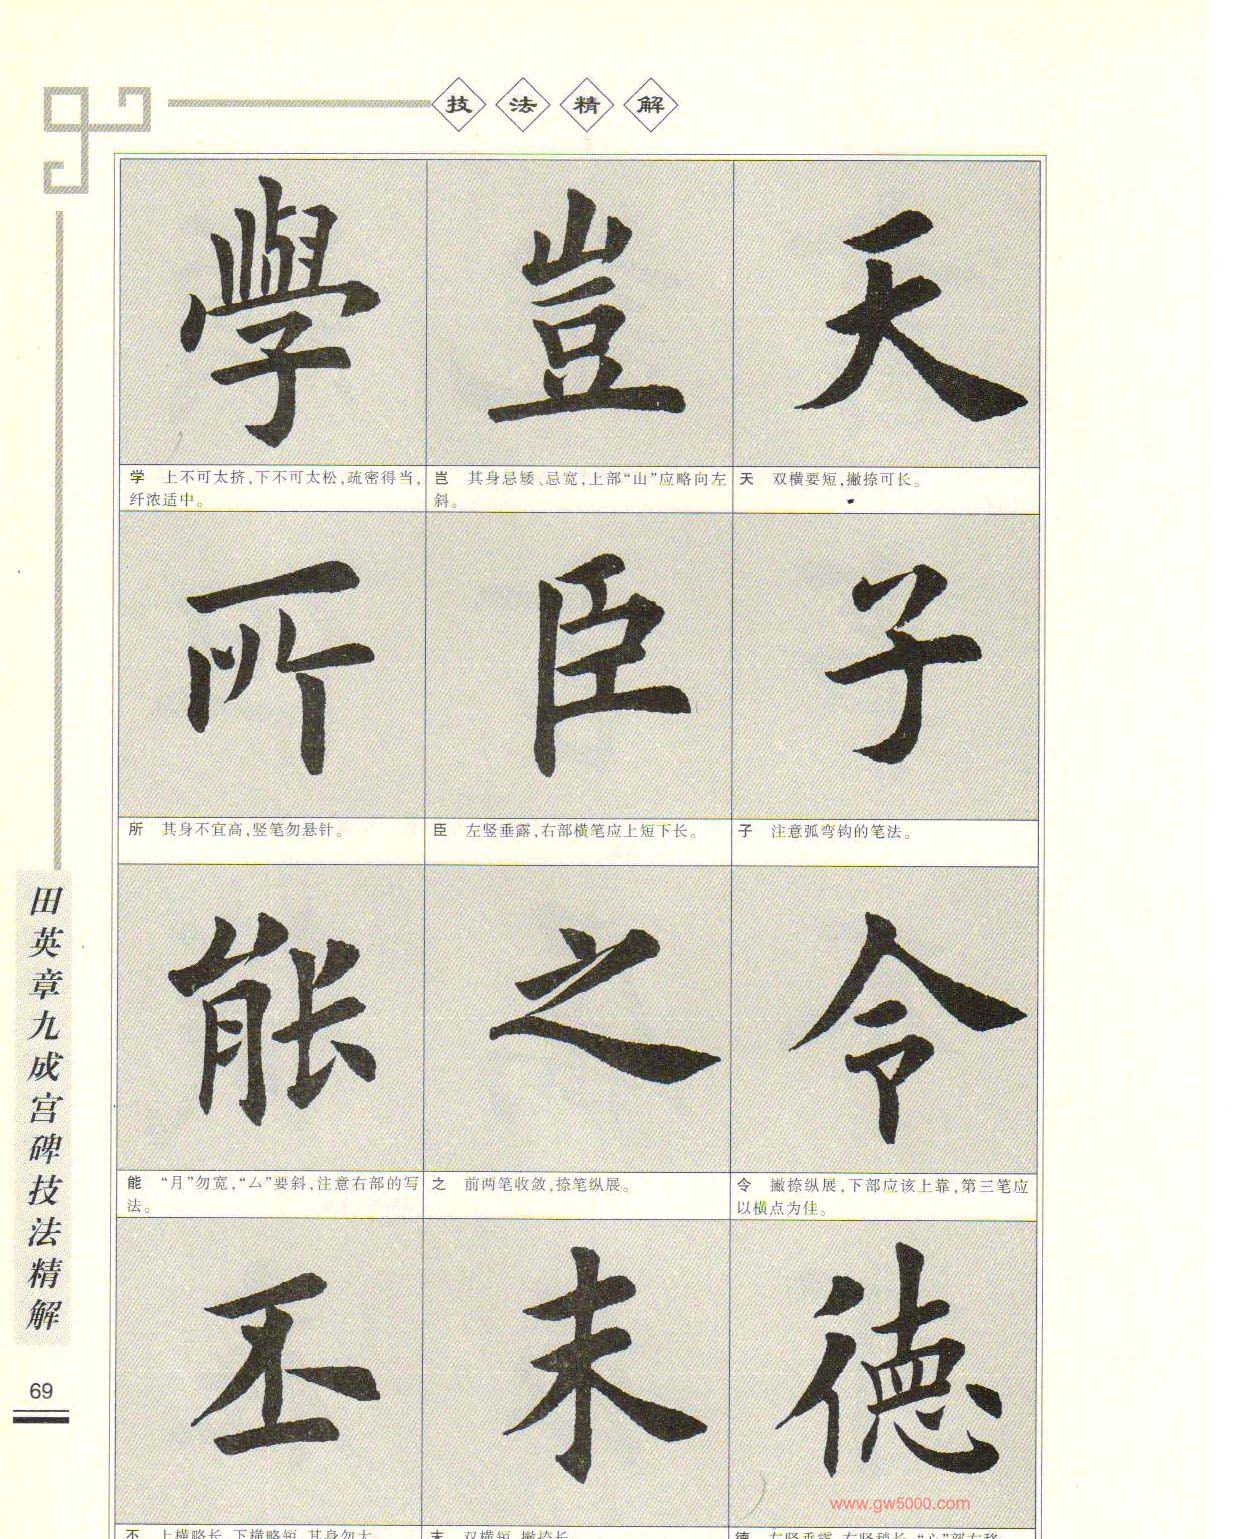 技法精解
學 豈 天
学 上不可太挤,下不可太松,疏密得当,
纤浓适中。
岂 其身忌矮、忌宽,上部“山”应略向左
斜。
天 双横要短,撇捺可长。
所 臣 子
所 其身不宜高,竖笔勿悬针。
臣 左竖垂露,右部横笔应上短下长。
子 注意弧弯钩的笔法。
能 之 令
能 “月”勿宽,“厶”要斜,注意右部的写
法。
之 前两笔收敛,捺笔纵展。
令 撇捺纵展,下部应该上靠,第三笔应
以横点为佳。
丕 末 德
丕 上横略长,下横略短,其身勿大。
末 双横短,撇捺长。
田英章九成宫碑技法精解
69
www.gw5000.com